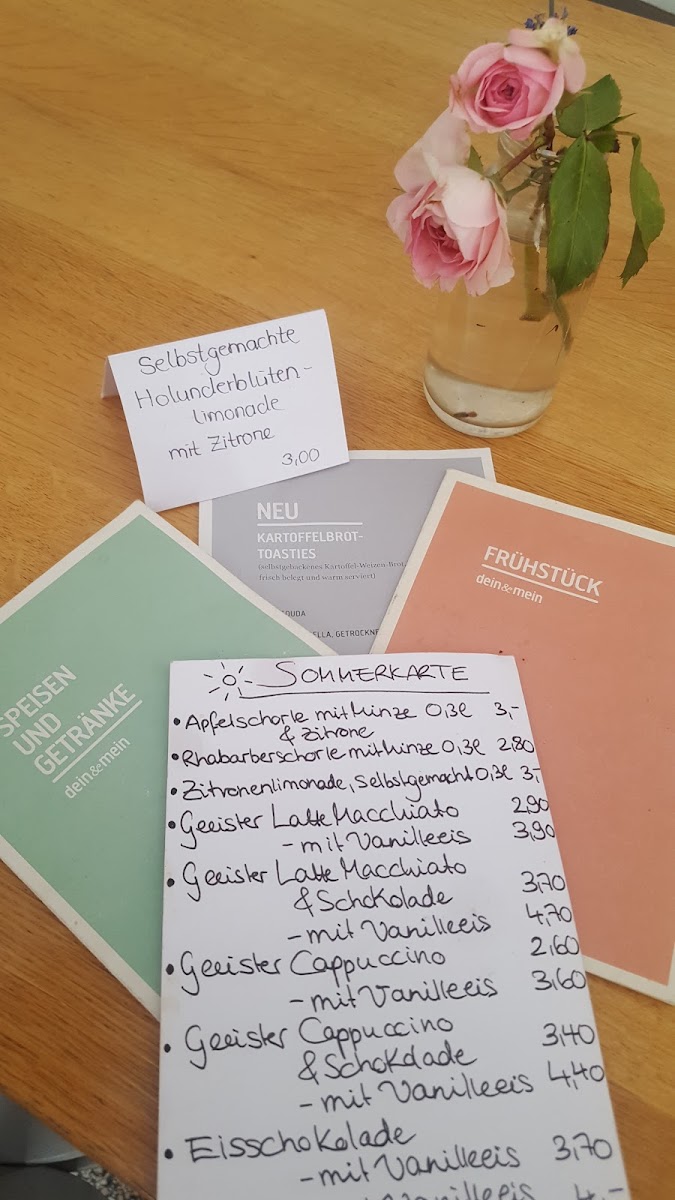 Selbstgemachte
Holunderblüten-
limonade
mit Zitrone
3,00
NEU
KARTOFFELBROT-
TOASTIES
(selbstgebackenes Kartoffel-Weizen-Brot,
frisch belegt und warm serviert)
OUDA
ELLA, GETROCKNE
FRÜHSTÜCK
dein&mein
SPEISEN
UND
GETRÄNKE
dein&mein
SOMMERKARTE
• Apfelschorle mit Minze 0,3l 3,-
& Zitrone
• Rhabarberschorle mit Minze 0,3l 2,80
• Zitronenlimonade, selbstgemacht 0,3l 3,-
• Geeister Latte Macchiato 2,90
- mit Vanilleeis 3,90
• Geeister Latte Macchiato
& Schokolade 3,70
- mit Vanilleeis 4,70
• Geeister Cappuccino 2,60
- mit Vanilleeis 3,60
• Geeister Cappuccino 3,40
& Schokolade
- mit Vanilleeis 4,40
• Eisschokolade
- mit Vanilleeis 3,70
Vanilleeis 4,-